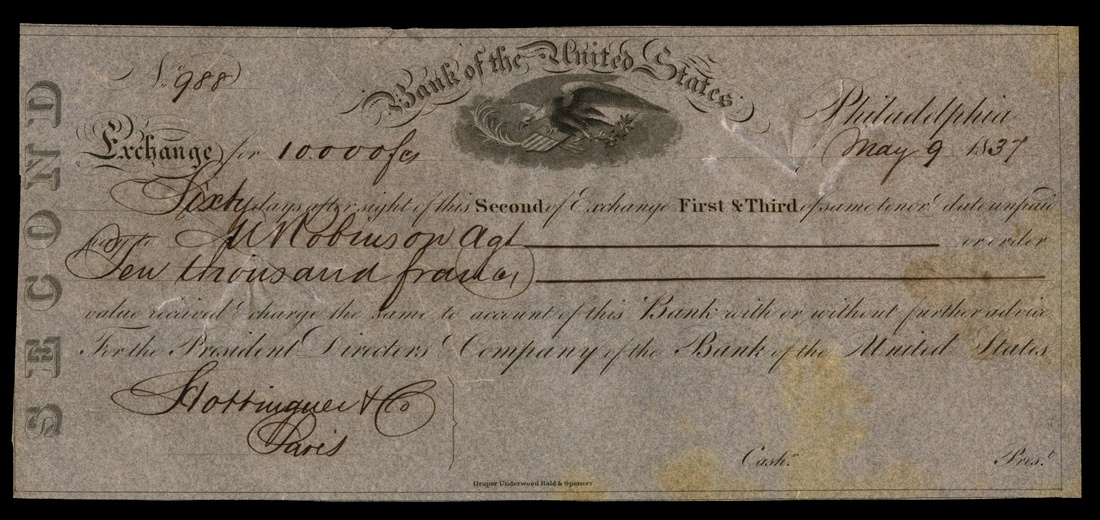 SECOND
No. 988
Bank of the United States
Philadelphia
Exchange for 10.000 fcs May 9 1837
Sixty days after sight of this Second of Exchange First & Third of same tenor & date unpaid
pay to M Robinson Agt or order
Ten thousand francs
value received & charge the same to account of this Bank with or without further advice
For the President Directors & Company of the Bank of the United States
Hottinguer & Co
Paris
Cashr. Prest.
Draper Underwood Bald & Spencer